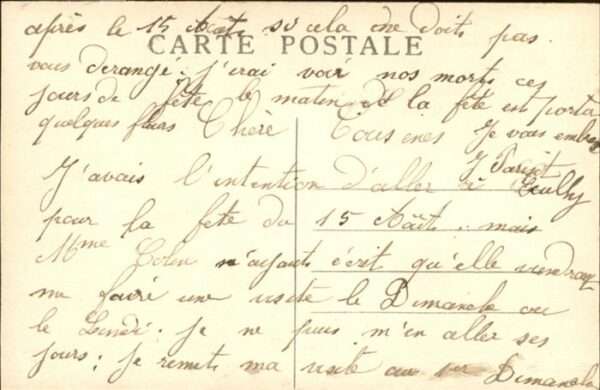 après le 15 Août si cela ne doits pas
CARTE POSTALE
vous derangé. j'irai voir nos morts ces
jours de fête le matin de la fête en porta
quelques fleurs Chère Je vous embra
J'avais l'intention d'aller à
pour la fete du 15 Août. mais
Mme n'ayant écrit qu'elle viendrai
me faire une visite le Dimanche ou
le Lundi. je ne puis m'en aller ses
jours; je remets ma visite au 1er Dimanche